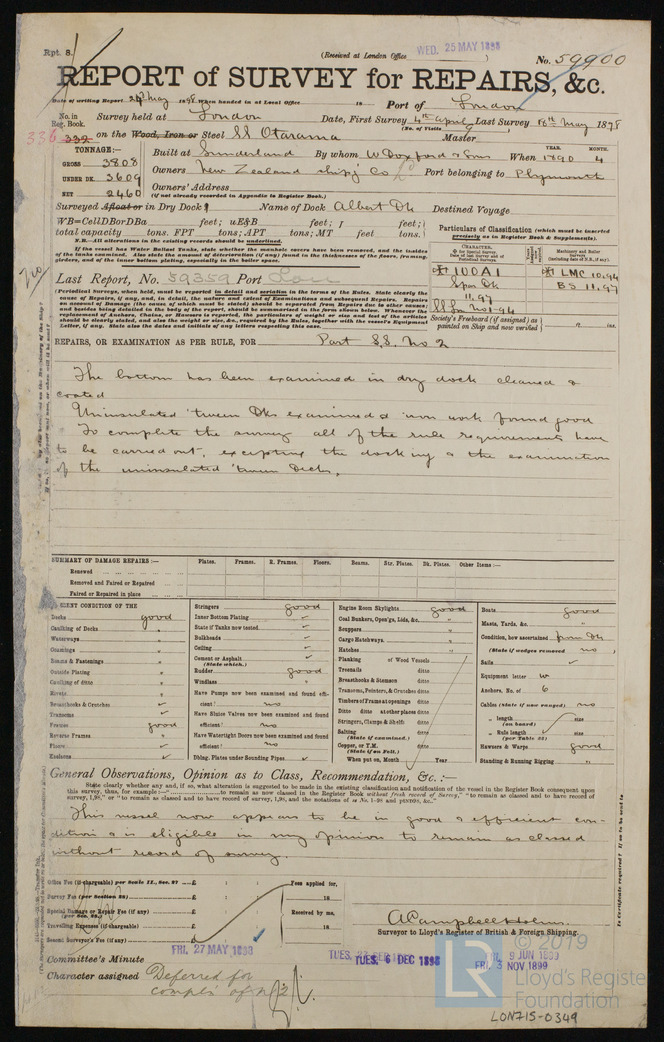 Rpt. 8.
(Received at London Office WED. 25 MAY 1898 )
No. 59900
REPORT of SURVEY for REPAIRS, &c.
Date of writing Report 24th May 1898 When handed in at Local Office 18 Port of London
No. in Reg. Book. Survey held at London Date, First Survey 4th April Last Survey 18th May 1898
(No. of Visits
336 332 on the Wood, Iron or Steel SS Otarama Master
TONNAGE:—
GROSS 3808
UNDER DK. 3609
NET 2460
Built at Sunderland By whom W Doxford & Sons When 1890 4
YEAR. MONTH.
Owners New Zealand Shipg Co Ld Port belonging to Plymouth
Owners' Address
(if not already recorded in Appendix to Register Book.)
Surveyed Afloat or in Dry Dock Name of Dock Albert Dk Destined Voyage
WB=CellDBorDBa feet; uE&B feet; f feet;
total capacity tons. FPT tons; APT tons; MT feet tons.
N.B.—All alterations in the existing records should be underlined.
If the vessel has Water Ballast Tanks, state whether the manhole covers have been removed, and the insides of the tanks examined. Also state the amount of deterioration (if any) found in the thicknesses of the floors, framing, girders, and of the inner bottom plating, especially in the boiler space.
Particulars of Classification (which must be inserted precisely as in Register Book & Supplements).
100A1
Spar Dk
11.97
SS Lon No1-94
LMC 10.94
BS 11.97
Society's Freeboard (if assigned) as painted on Ship and now verified ft. ins.
Last Report, No. 59359 Port Lon
(Periodical Surveys, when held, must be reported in detail and seriatim in the terms of the Rules. State clearly the cause of Repairs, if any, and, in detail, the nature and extent of Examinations and subsequent Repairs. Repairs on account of Damage (the cause of which must be stated) should be separated from Repairs due to other causes; and besides being detailed in the body of the report, should be summarised in the form shewn below. Whenever the replacement of Anchors, Chains, or Hawsers is reported, the particulars of weight or size and test of the articles should be clearly stated, and also the weight or size, &c., required by the Rules, together with the vessel's Equipment Letter, if any. State also the dates and initials of any letters respecting this case.
REPAIRS, OR EXAMINATION AS PER RULE, FOR Part S.S. No 2
The bottom has been examined in dry dock cleaned &
coated
Uninsulated 'tween Dks examined & iron work found good
To complete the survey all of the rule requirements have
to be carried out, excepting the docking & the examination
of the uninsulated 'tween Decks.
SUMMARY OF DAMAGE REPAIRS:— Plates. Frames. R. Frames. Floors. Beams. Str. Plates. Dk. Plates. Other Items:—
Renewed
Removed and Faired or Repaired
Faired or Repaired in place
PRESENT CONDITION OF THE
Decks good
Caulking of Decks "
Waterways "
Coamings "
Beams & Fastenings "
Outside Plating "
Caulking of ditto "
Rivets "
Breasthooks & Crutches
Transoms
Frames good
Reverse Frames "
Floors
Keelsons
Stringers good
Inner Bottom Plating
State if Tanks now tested
Bulkheads
Ceiling
Cement or Asphalt
(State which.)
Rudder good
Windlass "
Have Pumps now been examined and found efficient? no
Have Sluice Valves now been examined and found efficient? no
Have Watertight Doors now been examined and found efficient? no
Dblng. Plates under Sounding Pipes
Engine Room Skylights good
Coal Bunkers, Open'gs, Lids, &c. "
Scuppers "
Cargo Hatchways "
Hatches "
Planking of Wood Vessels
Treenails ditto
Breasthooks & Stemson ditto
Transoms, Pointers, & Crutches ditto
Timbers of Frame at openings ditto
Ditto ditto at other places ditto
Stringers, Clamps & Shelfs ditto
Salting ditto
(State if examined.)
Copper, or Y.M. ditto
(State if on Felt.)
When put on, Month Year
Boats good
Masts, Yards, &c. "
Condition, how ascertained from Dk
(State if wedges removed no )
Sails
Equipment letter W
Anchors, No. of 6
Cables (State if now ranged) no
" length size
(on board)
" Rule length size
(per Table 22)
Hawsers & Warps good
Standing & Running Rigging "
General Observations, Opinion as to Class, Recommendation, &c. :—
State clearly whether any and, if so, what alteration is suggested to be made in the existing classification and notification of the vessel in the Register Book consequent upon this survey, thus, for example:—" to remain as now classed in the Register Book without fresh record of Survey," "to remain as classed and to have record of survey, 1,98," or "to remain as classed and to have record of survey, 1,98, and the notations of ss No. 1-98 and PTND98, &c."
This vessel now appears to be in good & efficient con-
dition & is eligible in my opinion to remain as classed
without record of survey.
Office Fee (if chargeable) per Scale II., Sec. 27 £ : :
Survey Fee (per Section 28) £ : :
Special Damage or Repair Fee (if any) £ : :
(per Sec. 28.)
Travelling Expenses (if chargeable) £ : :
Second Surveyor's Fee (if any) £ : :
Fees applied for,
18
Received by me,
18
A Campbell Holms.
Surveyor to Lloyd's Register of British & Foreign Shipping.
Committee's Minute FRI. 27 MAY 1898 TUES. 6 DEC 1898 FRI. 9 JUN 1899
FRI. 3 NOV 1899
Character assigned Deferred for
compl. of No 2
© 2019
LR
Lloyd's Register
Foundation
LON715-0349